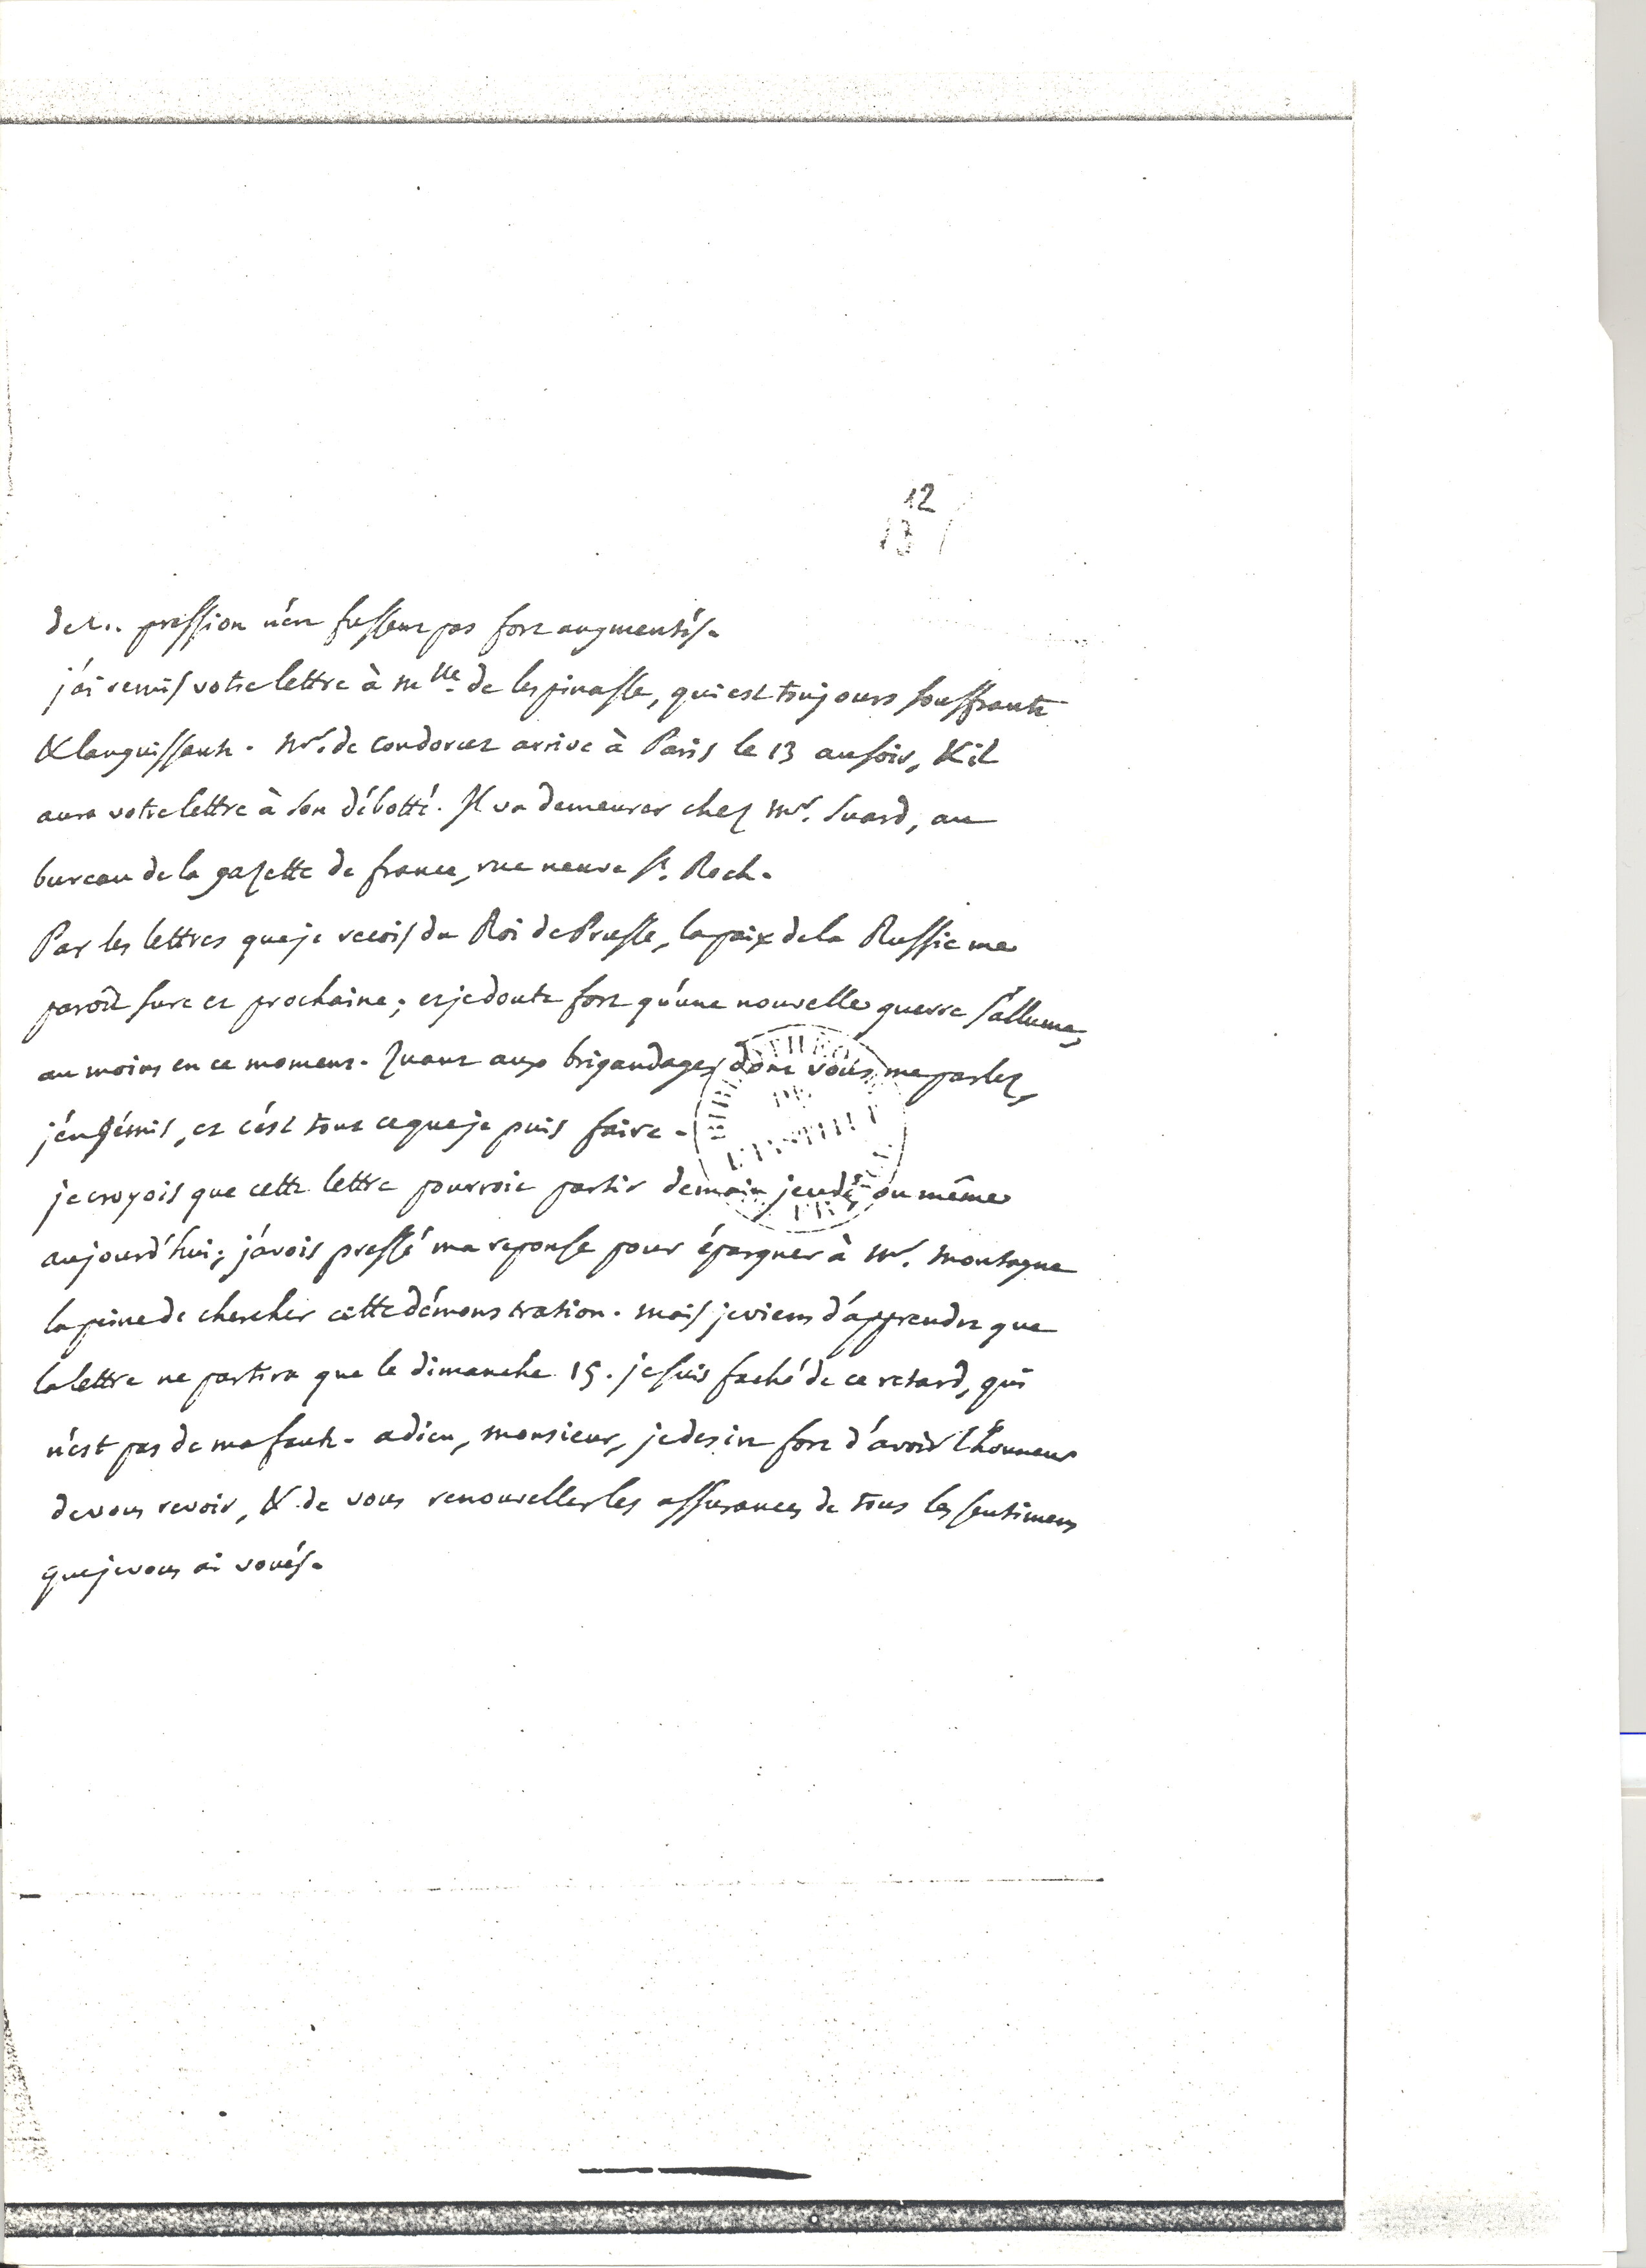 12
13
de l.. pression n'en fussent pas fort augmentés.
j'ai remis votre lettre à Mlle. de lespinasse, qui est toujours souffrante
& languissante. Mr. de Condorcet arrive à Paris le 13 au soir, & il
aura votre lettre à son débotté. Il va demeurer chez Mr. Suard, au
bureau de la gazette de france, rue neuve St. Roch.
Par les lettres que je recois du Roi de Prusse, la paix de la Russie me
paroît sure et prochaine; et je doute fort qu'une nouvelle guerre s'allume,
au moins en ce moment. Quant aux brigandages dont vous me parlez,
j'en gémis, et c'est tout ce que je puis faire.
je croyois que cette lettre pourroit partir demain jeudi, ou même
aujourd'hui; j'avois pressé ma reponse pour épargner à Mr. Montagne
la peine de chercher cette démonstration. mais je viens d'apprendre que
la lettre ne partira que le dimanche 15. je suis faché de ce retard, qui
n'est pas de ma faute. adieu, monsieur, je desire fort d'avoir l'honneur
de vous revoir, & de vous renouveller les assurances de tous les sentimens
que je vous ai voués.